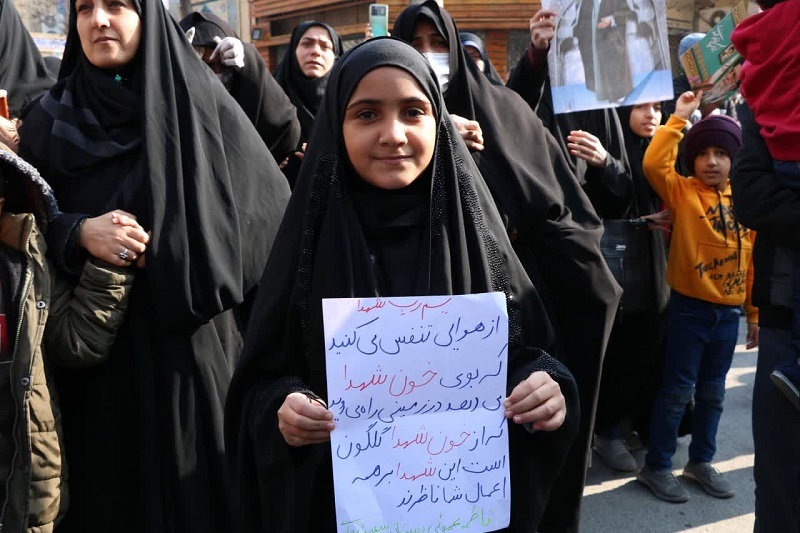 بسم رب شهدا
از هوایی تنفس می کنید
که بوی خون شهدا
می دهد در زمینی راه می روید
که از خون شهدا گلگون
است این شهدا بر همه
اعمال شما ناظرند
فاطمه